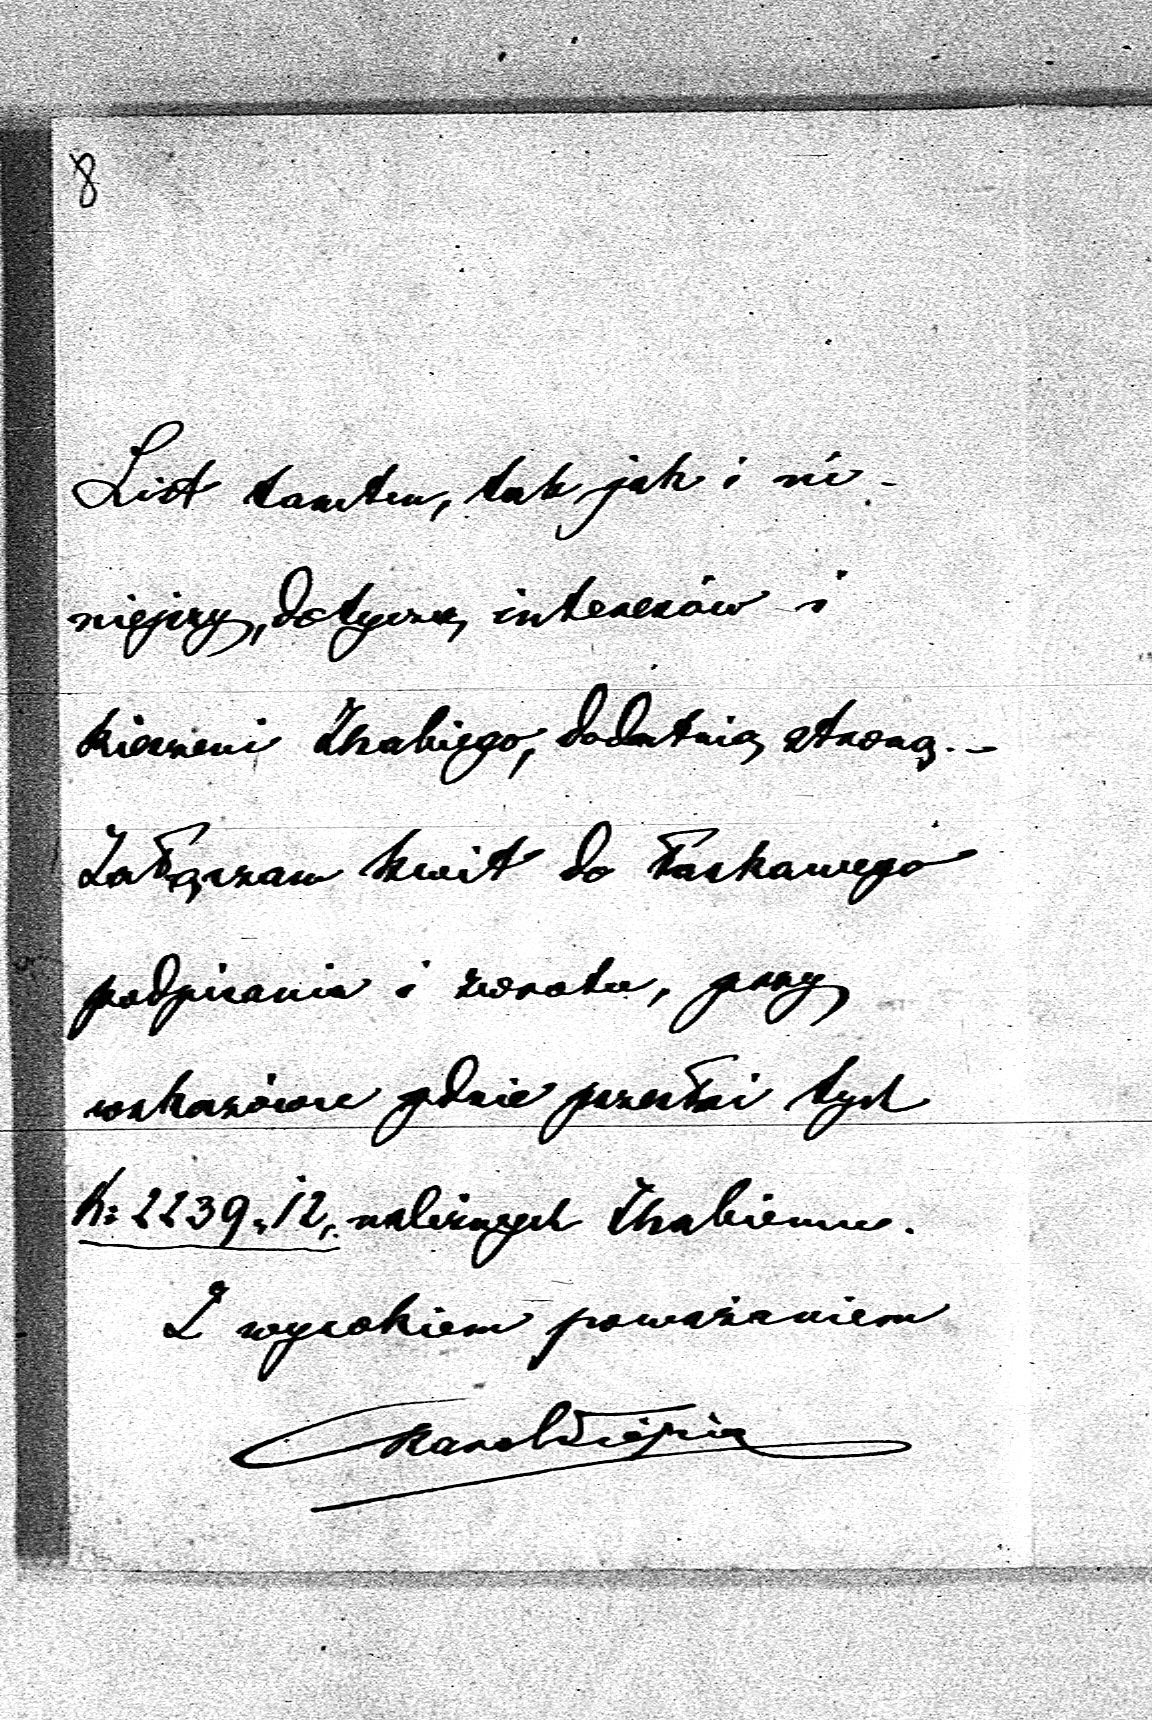 8
List tamten, tak jak i ni-
niejszy, dotyczą interesów i
kieszeni Hrabiego, dodatnią stroną.-
Załączam kwit do łaskawego
podpisania i zwrotu, przy
wskazówce gdzie przesłać tych
K: 2239.12. należnych Hrabiemu.
Z wysokiem poważaniem
Karol